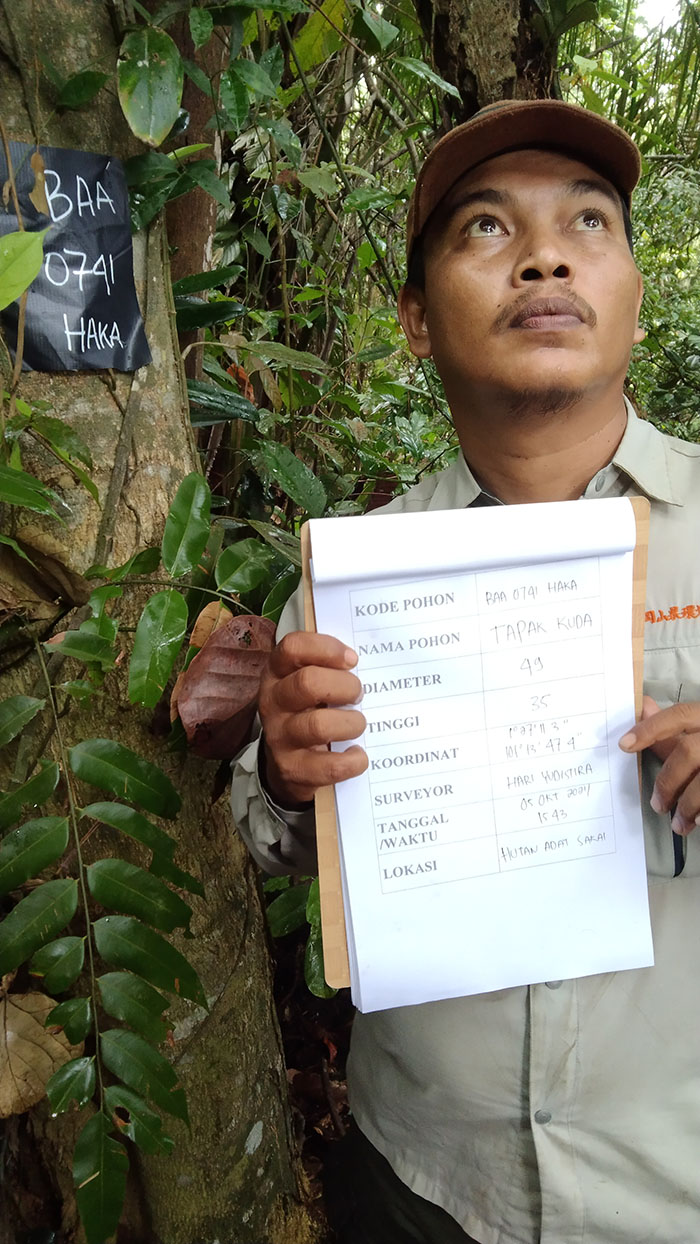 BAA
0741
HAKA
KODE POHON BAA 0741 HAKA
NAMA POHON TAPAK KUDA
DIAMETER 49
TINGGI 35
KOORDINAT 1°27'11.3"
101°13'47.4"
SURVEYOR HARI YUDISTIRA
TANGGAL 05 OKT 2024
/WAKTU 15.43
LOKASI HUTAN ADAT SAKAI